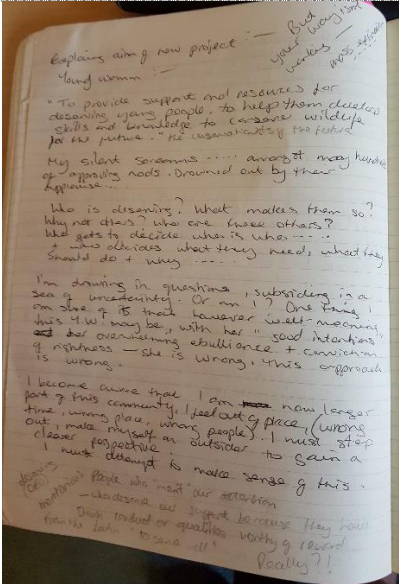 But
your way isn't
working —
mass extinct
Explaining aim of new project :—
Young woman :—
"To provide support and resources for
deserving young people, to help them develop
skills and knowledge to conserve wildlife
for the future... the conservationists of the future
My silent screams ..... amongst many hundreds
of approving nods. Drowned out by their
applause...
Who is deserving? What makes them so?
Why not others, who are these others?
Who gets to decide who is who .....
+ who decides what they need, what they
should do + why .....
I'm drowning in questions, subsiding in a
sea of uncertainty. Or am I? One thing I
am sure of is that however well-meaning
this Y.W. may be, with her "good intentions"
her overwhelming ebullience + conviction
of rightness — she is wrong. This approach
is wrong.
I become aware that I am now longer
part of this community, I feel out of place, (wrong
time, wrong place, wrong people). I must step
out, make myself an outsider to gain a
clearer perspective.
I must attempt to make sense of this.
People who "merit" our attention
— who deserve our support because they have
conduct or qualities worthy of reward
from the Latin "to serve well"
Really?!